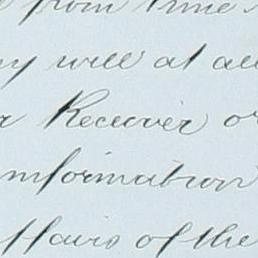 from time
will at all
Receiver or
information
ffairs of the